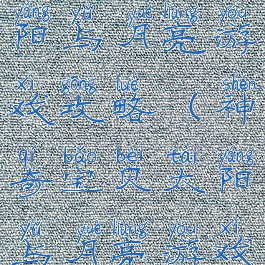 yáng yǔ yuè liàng yóu
阳与月亮游
xì gōng lüè shén
戏攻略(神
qí bǎo bèi tài yáng
奇宝贝太阳
yǔ yuè liàng yóu xì
与月亮游戏